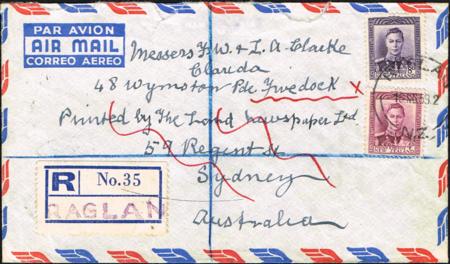 PAR AVION
AIR MAIL
CORREO AEREO
Messers F. W. & L. A. Clarke
Clarida
48 Wymston Pde Fivedock
Printed by The Land Newspaper Ltd
59 Regent St
Sydney
Australia
R No.35
RAGLAN
N.Z.